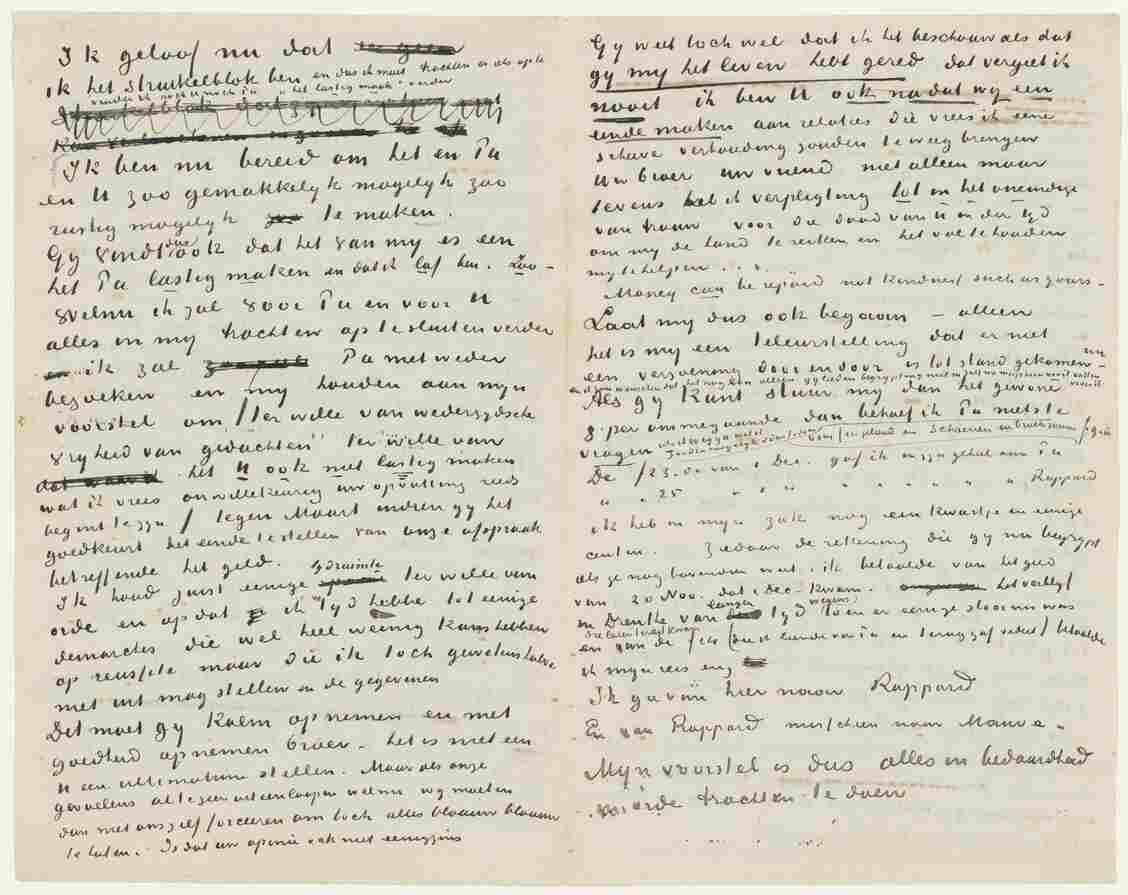 Ik geloof nu dat
ik het struikelblok ben en dus ik moet trachten er als op te
vinden ik noch U noch Pa "het lastig maak" verder
Ik ben nu bereid om het en Pa
en U zoo gemakkelijk mogelijk zoo
rustig mogelijk te maken.
Gij vindt dus ook dat het van mij is een
het Pa lastig maken en dat ik laf ben. Zoo-
Welnu ik zal voor Pa en voor U
alles in mij trachten op te sluiten verder
ik zal Pa niet weder
bezoeken en mij houden aan mijn
voorstel om (ter wille van wederzijdsche
vrijheid van gedachten" ter wille van
het U ook niet lastig maken
wat ik vrees onwillekeurig uw opvatting reeds
begint te zijn) tegen Maart indien gij het
goedkeurt het einde te stellen van onze afspraak
betreffende het geld.
Ik houd juist eenige tijdruimte ter wille van
orde en opdat ik tijd hebbe tot eenige
demarches die wel heel weinig kans hebben
op reussite maar die ik toch gewetenshalve
niet uit mag stellen in de gegevenen
Dit moet gij kalm opnemen en met
goedheid opnemen broer – het is niet een
U een ultimatum stellen. Maar als onze
gevoelens al te zeer uiteenloopen welnu wij moeten
dan niet ons zelf forceeren om toch alles blaauw blaauw
te laten. Is dat uw opinie ook niet eenigzins
Gij weet toch wel dat ik het beschouw als dat
gij mij het leven hebt gered dat vergeet ik
nooit ik ben U ook nadat wij een
einde maken aan relaties die vrees ik eene
scheve verhouding zouden teweeg brengen
Uw broer uw vriend niet alleen maar
tevens heb ik verpligting tot in het oneindige
van trouw voor die daad van U in der tijd
om mij de hand te reiken en het vol te houden
mij te helpen . . .
Money can be repaid not kindness such as yours –
Laat mij dus ook begaan – alleen
het is mij een teleurstelling dat er niet nu
een verzoening door en door is tot stand gekomen –
Als gij kunt stuur mij dan het gewone
per ommegaande dan behoef ik Pa niets te
vragen
De f23.80 van 1 Dec. gaf ik in zijn geheel aan Pa
" " 25 " " " " " " " " Rappard
ik heb in mijn zak nog een kwartje en eenige
centen. Ziedaar de rekening die gij nu begrijpt
als ge nog bovendien weet. ik betaalde van het geld
van 20 Nov. dat 1 Dec. kwam. het verblijf
in Drenthe van langen tijd wegens toen er eenige stoornis was
die later terecht kwam
en van de f14 (die ik leende van Pa en teruggaf sedert) betaalde
ik mijn reis enz
Ik ga van hier naar Rappard
En van Rappard misschien naar Mauve –
Mijn voorstel is dus alles in bedaardheid
in orde trachten te doen